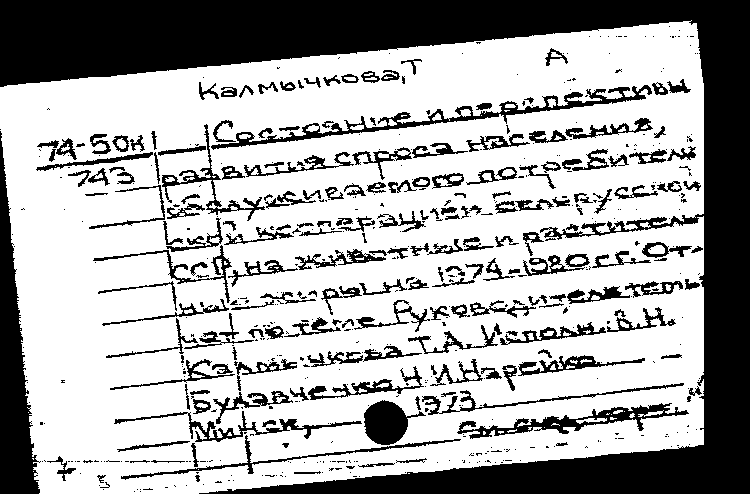 Калмычкова, Т А
74-50к Состояние и перспективы
743 развития спроса населения,
обслуживаемого потребитель
ской кооперацией Белорусской
ССР, на животные и раститель
ные жиры на 1974-1980 гг. От-
чет по теме. Руководитель темы
Калмычкова Т.А. Исполн.: В.Н.
Булавченко, Н.И. Нарейко
Минск, 1973.
См. след. карт.
+ 5